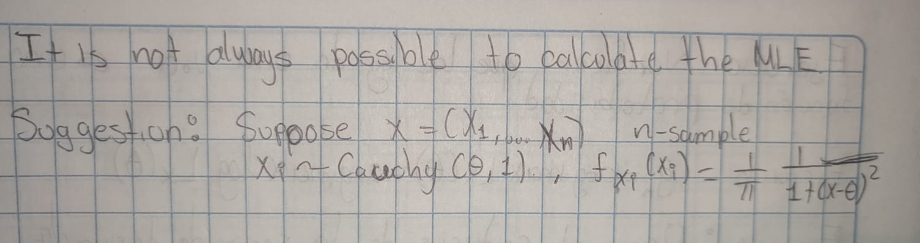 It is not always possible to calculate the MLE
Suggestion: Suppose x = (x₁,.... xₙ) n-sample
xᵢ ~ Cauchy (θ,1), f_{xᵢ}(xᵢ) = 1/π 1/(1+(x-θ)²)